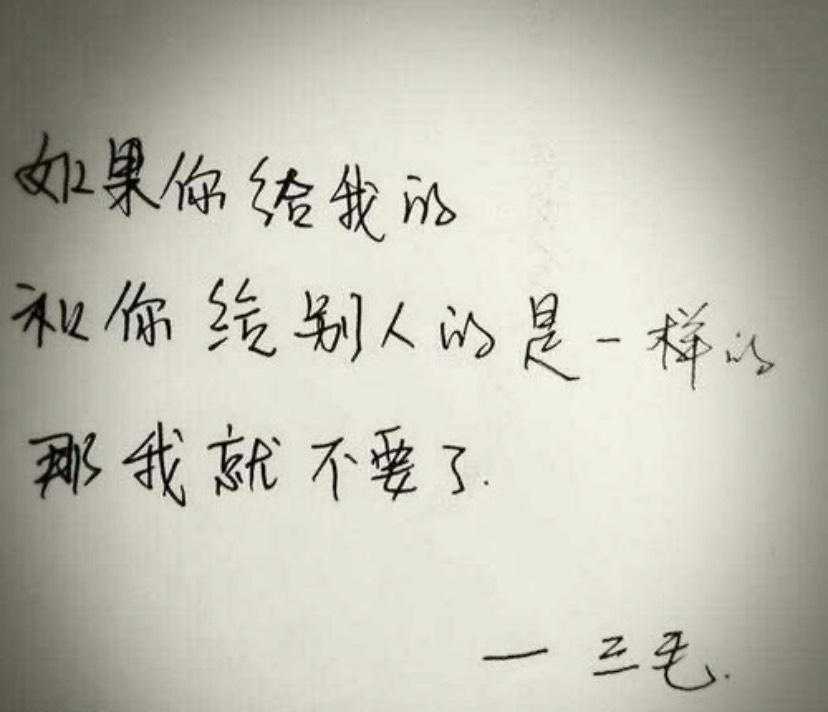 如果你给我的
和你给别人的是一样的
那我就不要了.
— 三毛.